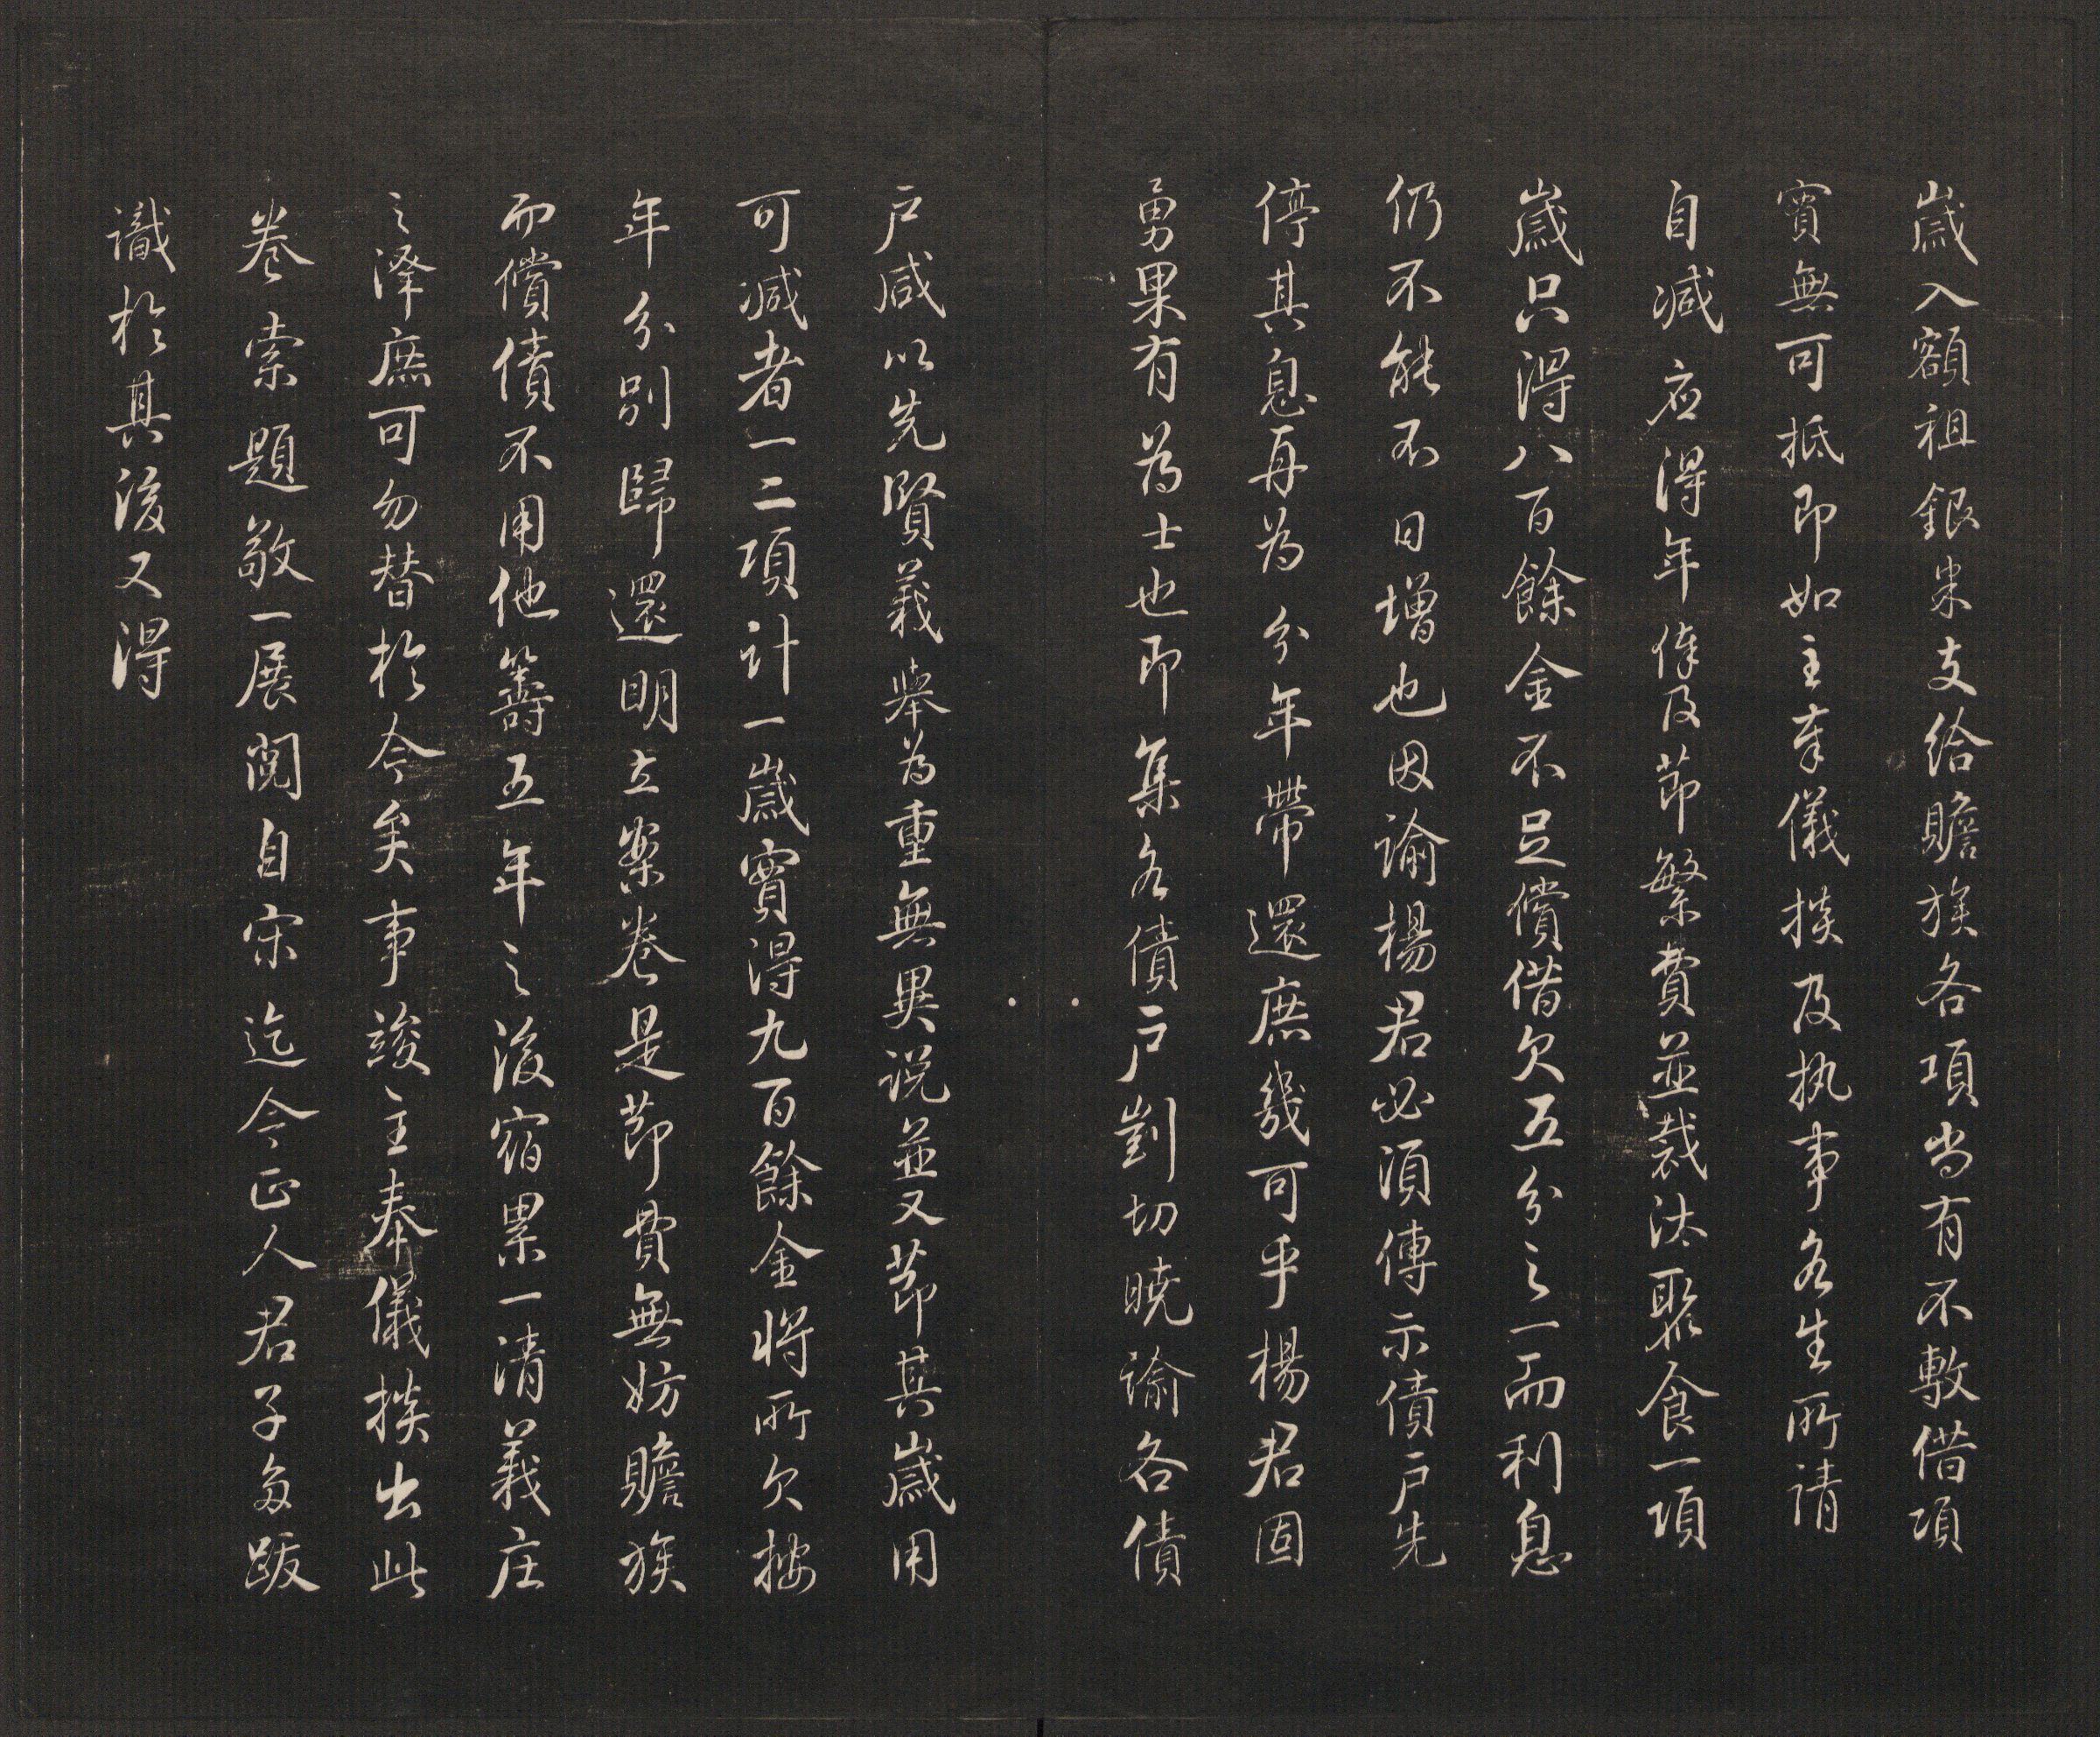 歲入額租銀米支給贍族各項尚有不敷借項
實無可抵即如主奉儀掞及执事各生所請
自减应得年俸及節繁費並裁汰聚食一項
歲只得八百餘金不足償借欠五分之一而利息
仍不能不日增也因諭楊君必須傳示債户先
停其息再为分年帶還庶幾可乎楊君固
勇果有為士也即集各債户剴切曉諭各債
户咸以先賢義舉为重無異说並又節其歲用
可减者一二項計一歲實得九百餘金將所欠按
年分別歸還明立案卷是節費無妨贍族
而償債不用他籌五年之後宿累一清義庄
之澤庶可勿替於今矣事竣主奉儀掞出此
卷索題敬一展閱自宋迄今正人君子多跋
識於其後又得